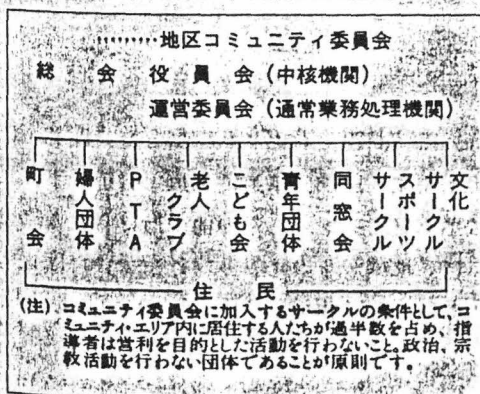 ………地区コミュニティ委員会
総会 役員会(中核機関)
運営委員会(通常業務処理機関)
町会
婦人団体
PTA
老人クラブ
こども会
青年団体
同窓会
スポーツサークル
文化サークル
住民
(注)コミュニティ委員会に加入するサークルの条件として、コ
ミュニティ・エリア内に居住する人たちが過半数を占め、指
導者は営利を目的とした活動を行わないこと。政治、宗
教活動を行わない団体であることが原則です。